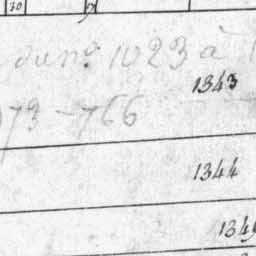 10
du nº 1023 à
1343
973-766
1344
134